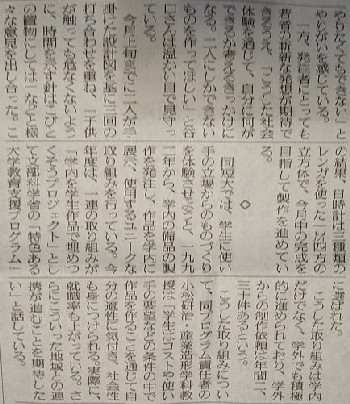 やりがいを感じている。
一方、発注者にとっても
若者の斬新な発想が期待で
きるうえ、「こうした社会
体験を通じて、自分に何が
できるか考えるきっかけに
なる。二人にしかできない
ものを作ってほしい」と谷
口さんは温かい目で見守っ
ている。
今月上旬までに二人が手
掛けた設計図を基に三回の
打ち合わせを重ね、「子供
が触っても危なくないよう
に、時間を示す針はこびと
の置物にしては」など様々
な意見を出し合った。こ
の結果、日時計は二種類の
レンガを使った一㍍四方の
立方体で、今月中の完成を
目指して製作を進めてい
る。
◇
同短大では、学生に使い
手の立場からのものづくり
を体験させようと、一九九
二年から、学内の備品の製
作を発注し、作品を学内に
展示、使用するユニークな
取り組みを行っている。今
年度は、一連の取り組みが
「学内を学生作品で埋めつ
くそうプロジェクト」とし
て文部科学省の「特色ある
大学教育支援プログラム」
に選ばれた。
こうした取り組みは学内
だけでなく、学外でも積極
的に進められており、学外
からの制作依頼は年間二、
三十件あるという。
こうした取り組みについ
て、同プログラム責任者の
小松研治・産業造形学科教
授は「学生にコストや使い
手の要望などの条件の中で
作品を作ることを通じて自
分の適性に気付き、社会性
も身につけられる。実際に、
就職率も上がっている。さ
らにこういった地域との連
携が進むことを期待した
い」と話している。